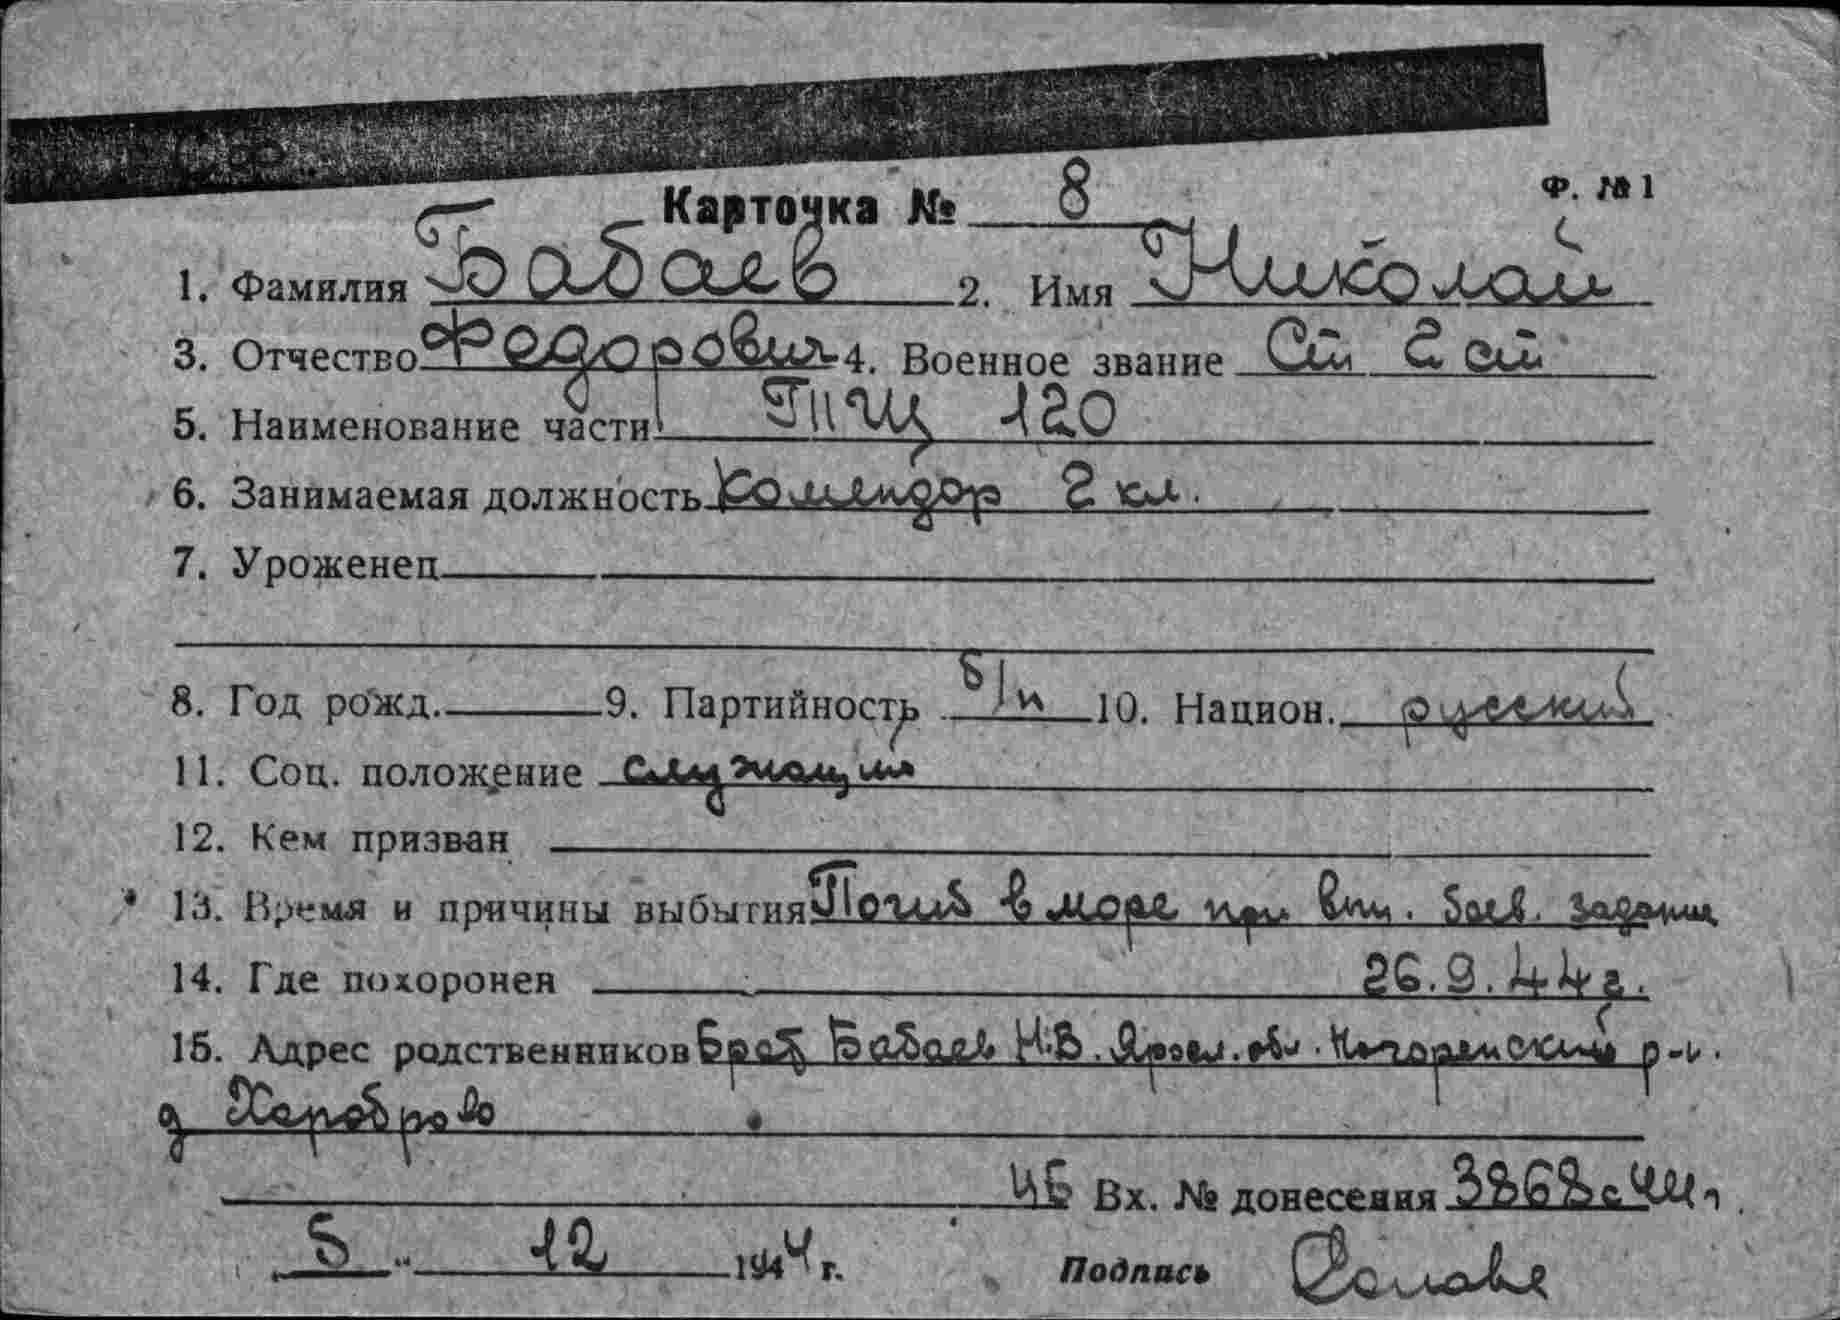 Ф. № 1
Карточка № 8
1. Фамилия Бабаев 2. Имя Николай
3. Отчество Федорович 4. Военное звание Ст 2 ст
5. Наименование части ТЩ 120
6. Занимаемая должность Комендор 2 кл.
7. Уроженец
8. Год рожд. 9. Партийность б/п 10. Национ. русский
11. Соц. положение служащий
12. Кем призван
13. Время и причины выбытия Погиб в море при вып. боев. задания
14. Где похоронен 26.9.44 г.
15. Адрес родственников Брат Бабаев Н.В. Яросл. обл. Нагорьевский р-н.
д
Вх. № донесения 3868с 44 г.
5 12 1944 г. Подпись